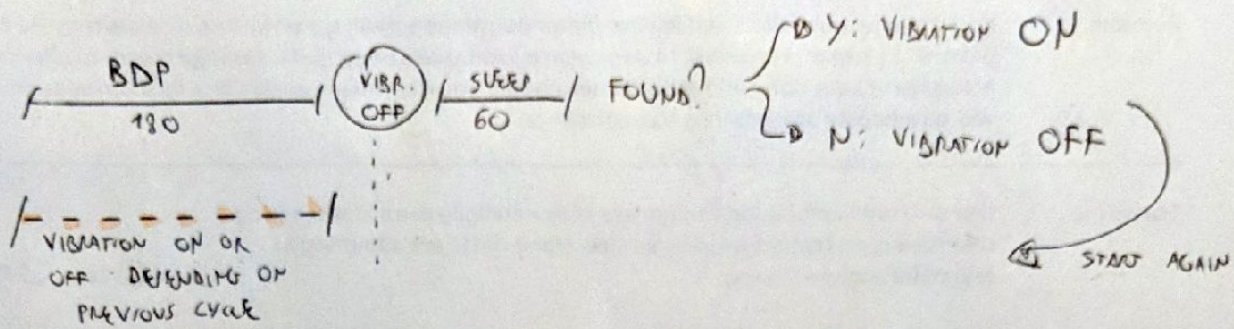 BDP
180
VIBR
OFF
SLEEP
60
FOUND?
Y: VIBRATION ON
N: VIBRATION OFF
START AGAIN
VIBRATION ON OR
OFF DEPENDING ON
PREVIOUS CYCLE